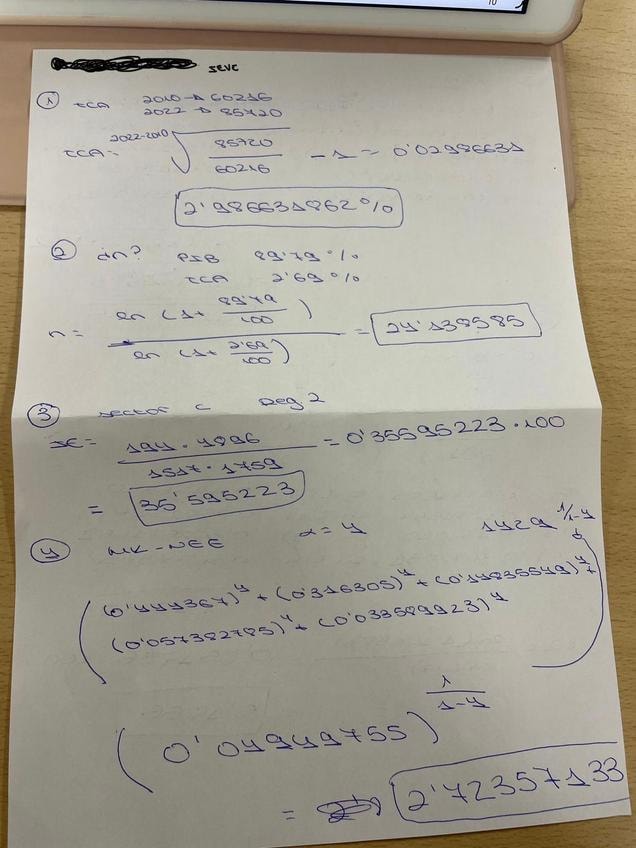 SEVC
① TCA 2010 → 60216
2022 → 85720
TCA = 2022-2010 √ 85720 / 60216 - 1 = 0'02986631
2'986631862 %
② ¿n? PIB 89'79 %
TCA 2'69 %
n = ln (1+ 89'79/100) / ln (1+ 2'69/100) = 24'138585
③ sector C Reg 2
SE = 194 · 4896 / 1517 · 1759 = 0'35595223 · 100
= 35'595223
④ NK-NEE α = 4 1429 1/1-4
( (0'444367)⁴ + (0'316305)⁴ + (0'14835549)⁴ +
(0'057382785)⁴ + (0'033589923)⁴ )
( 0'04949755 ) 1/1-4
= 2'72357133